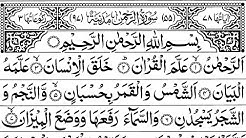 اٰیاتها ٧٨ (٥٥) سُوْرَةُ الرَّحْمٰنِ مَدَنِيَّةٌ (٩٧) رکوعاتها ٣
بِسْمِ اللّٰهِ الرَّحْمٰنِ الرَّحِيْمِ
اَلرَّحْمٰنُ ۙ عَلَّمَ الْقُرْاٰنَ ؕ خَلَقَ الْاِنْسَانَ ۙ عَلَّمَهُ
الْبَيَانَ اَلشَّمْسُ وَالْقَمَرُ بِحُسْبَانٍ ۙ وَّالنَّجْمُ وَ
الشَّجَرُ يَسْجُدٰنِ وَالسَّمَآءَ رَفَعَهَا وَوَضَعَ الْمِيْزَانَ ۙ